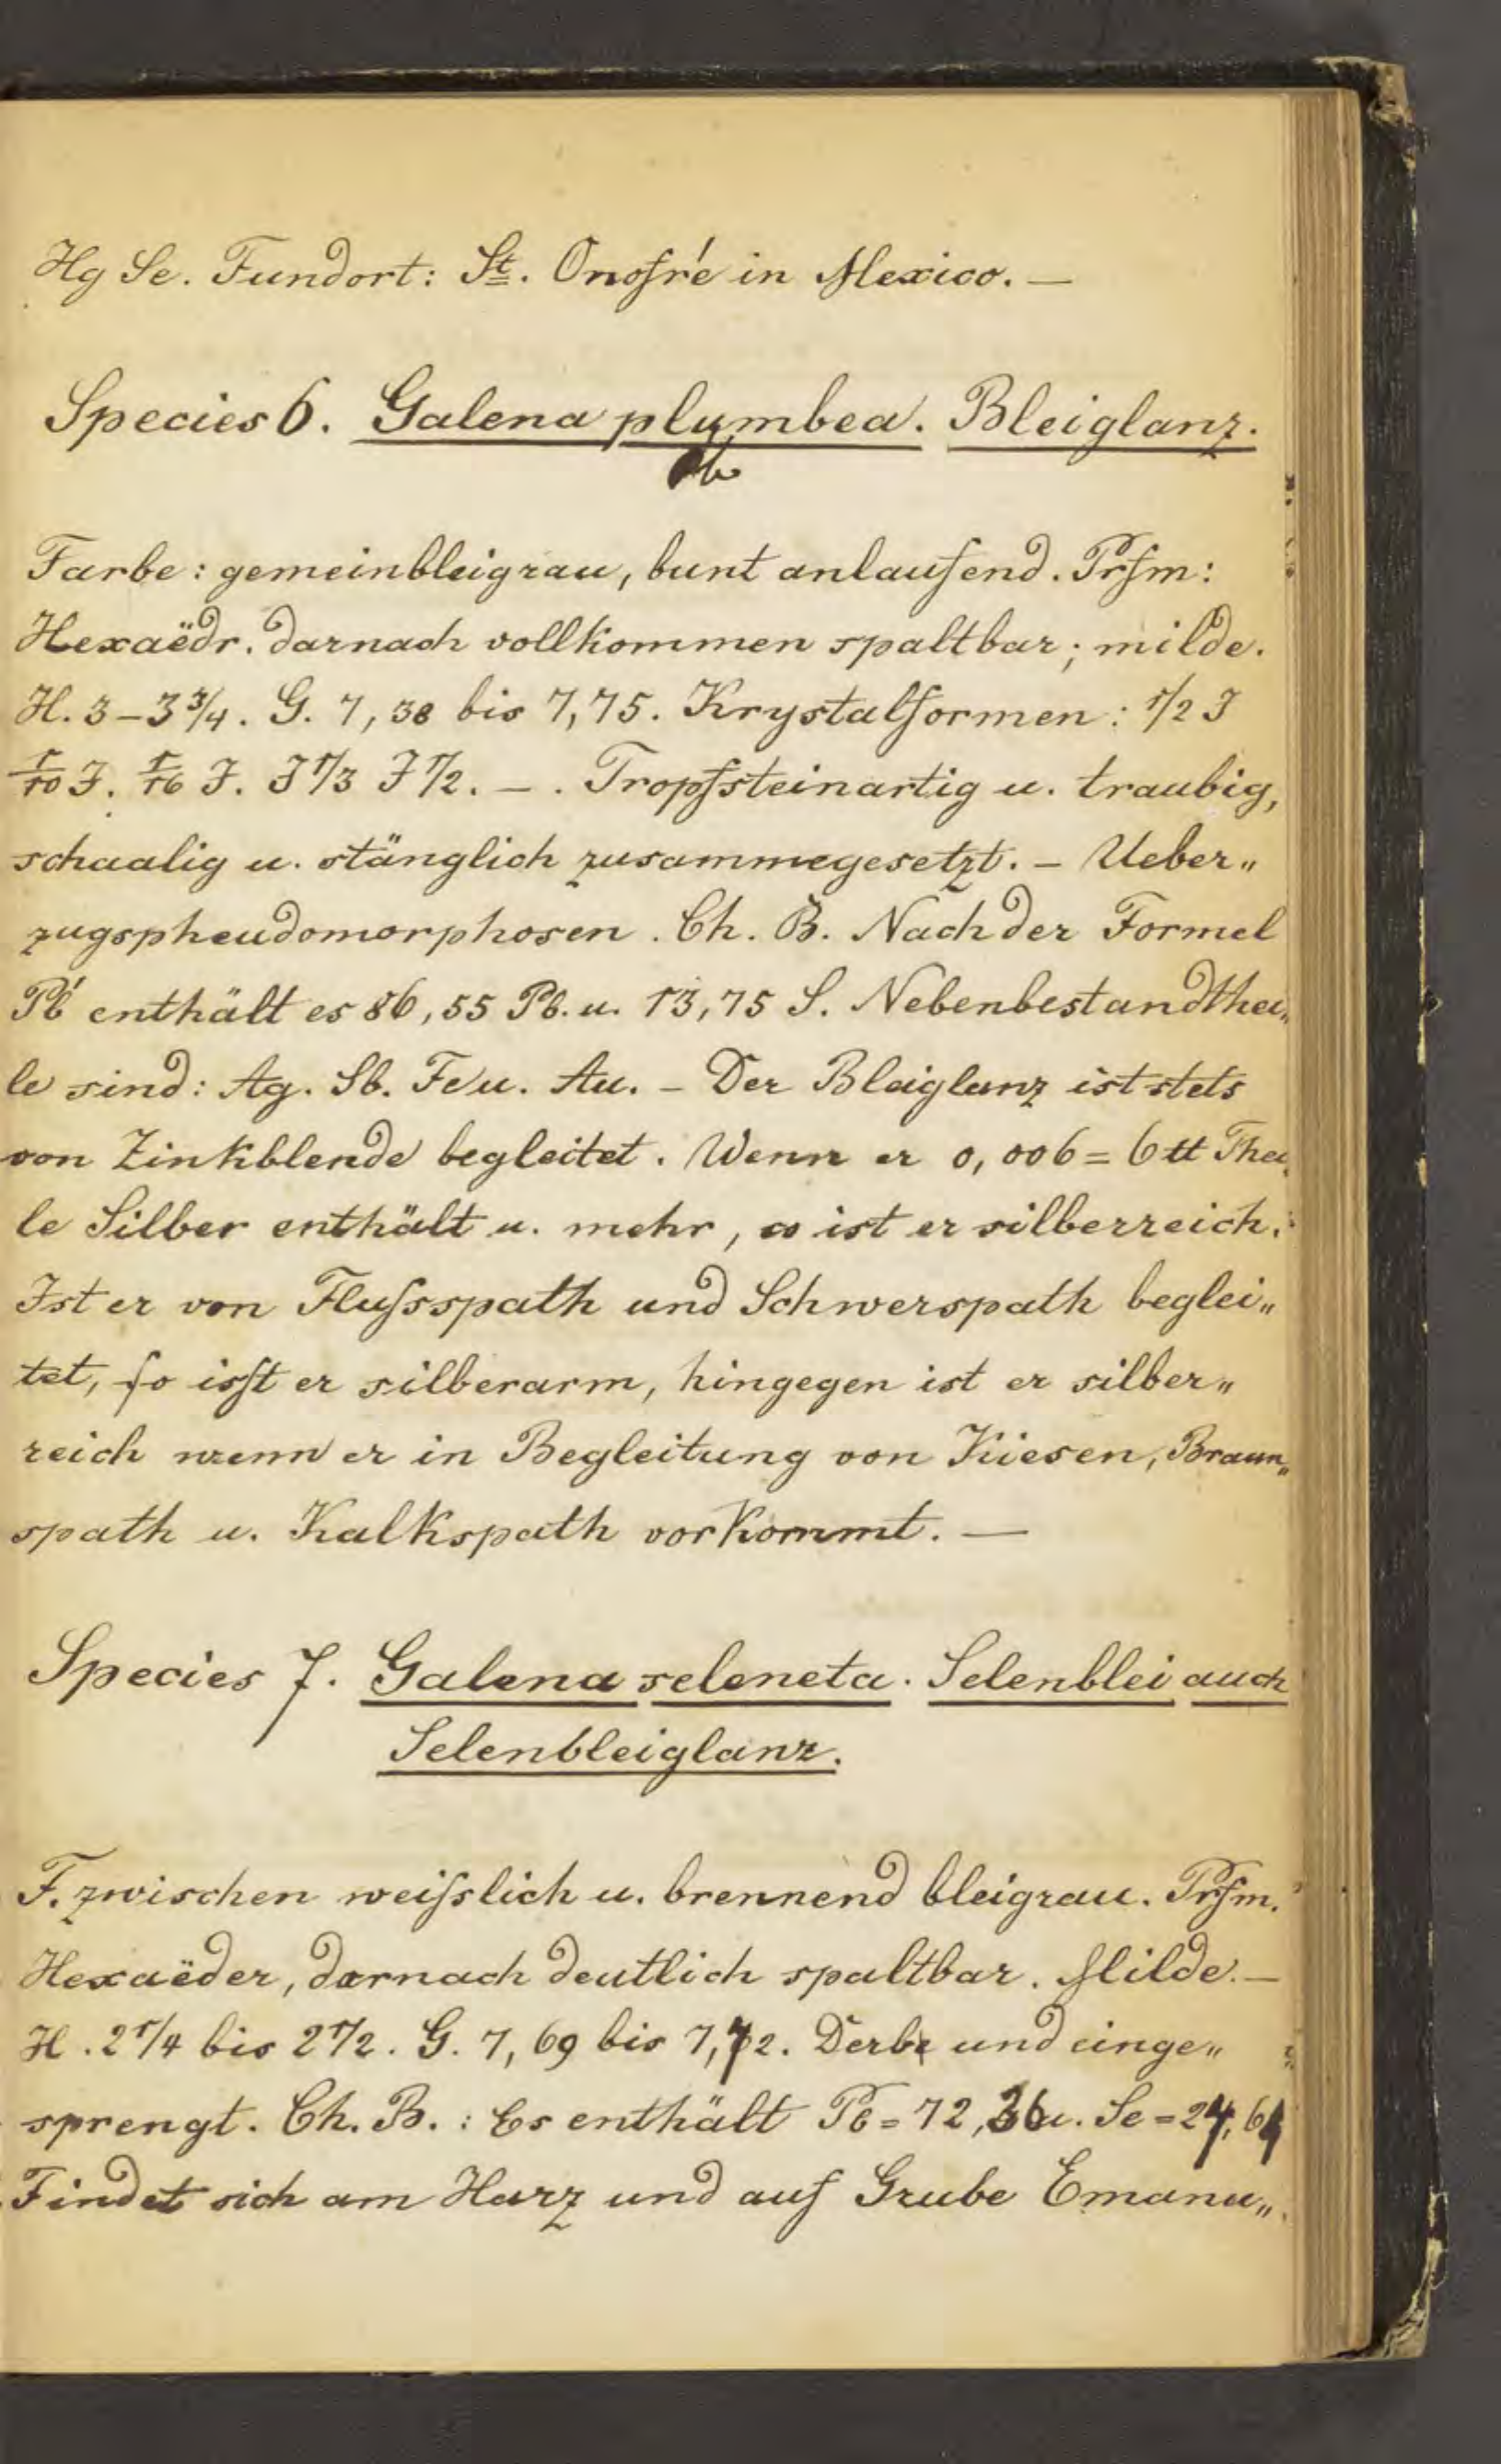 Hg Se. Fundort: St. Onofré in Mexico. —
Species 6. Galena plumbea. Bleiglanz.
Farbe: gemeinbleigrau, bunt anlaufend. Prfm:
Hexaëdr. darnach vollkommen spaltbar; milde.
H. 3–3 3/4. G. 7,38 bis 7,75. Krystalformen: 1/2 J
1/10 J. 1/16 J. J 1/3 J 1/2. – . Tropfsteinartig u. traubig,
schaalig u. stänglich zusammegesetzt. – Ueber„
zugspheudomorphosen. Ch. B. Nach der Formel
Pb' enthält es 86,55 Pb. u. 13,75 S. Nebenbestandthei„
le sind: Ag. Sb. Fe u. Au. – Der Bleiglanz ist stets
von Zinkblende begleitet. Wenn er 0,006 = 6 tt Thei„
le Silber enthält u. mehr, so ist er silberreich.
Ist er von Flußspath und Schwerspath beglei„
tet, so isst er silberarm, hingegen ist er silber„
reich wenn er in Begleitung von Kiesen, Braun„
spath u. Kalkspath vorkommt. —
Species 7. Galena seleneta. Selenblei auch
Selenbleiglanz.
F. zwischen weißlich u. brennend bleigrau. Prfm.
Hexaëder, darnach deutlich spaltbar. Milde. —
H. 2 1/4 bis 2 1/2. G. 7,69 bis 7,72. Derb und einge„
sprengt. Ch. B.: Es enthält Pb = 72,36 u. Se = 24,64
Findet sich am Harz und auf Grube Emanu„